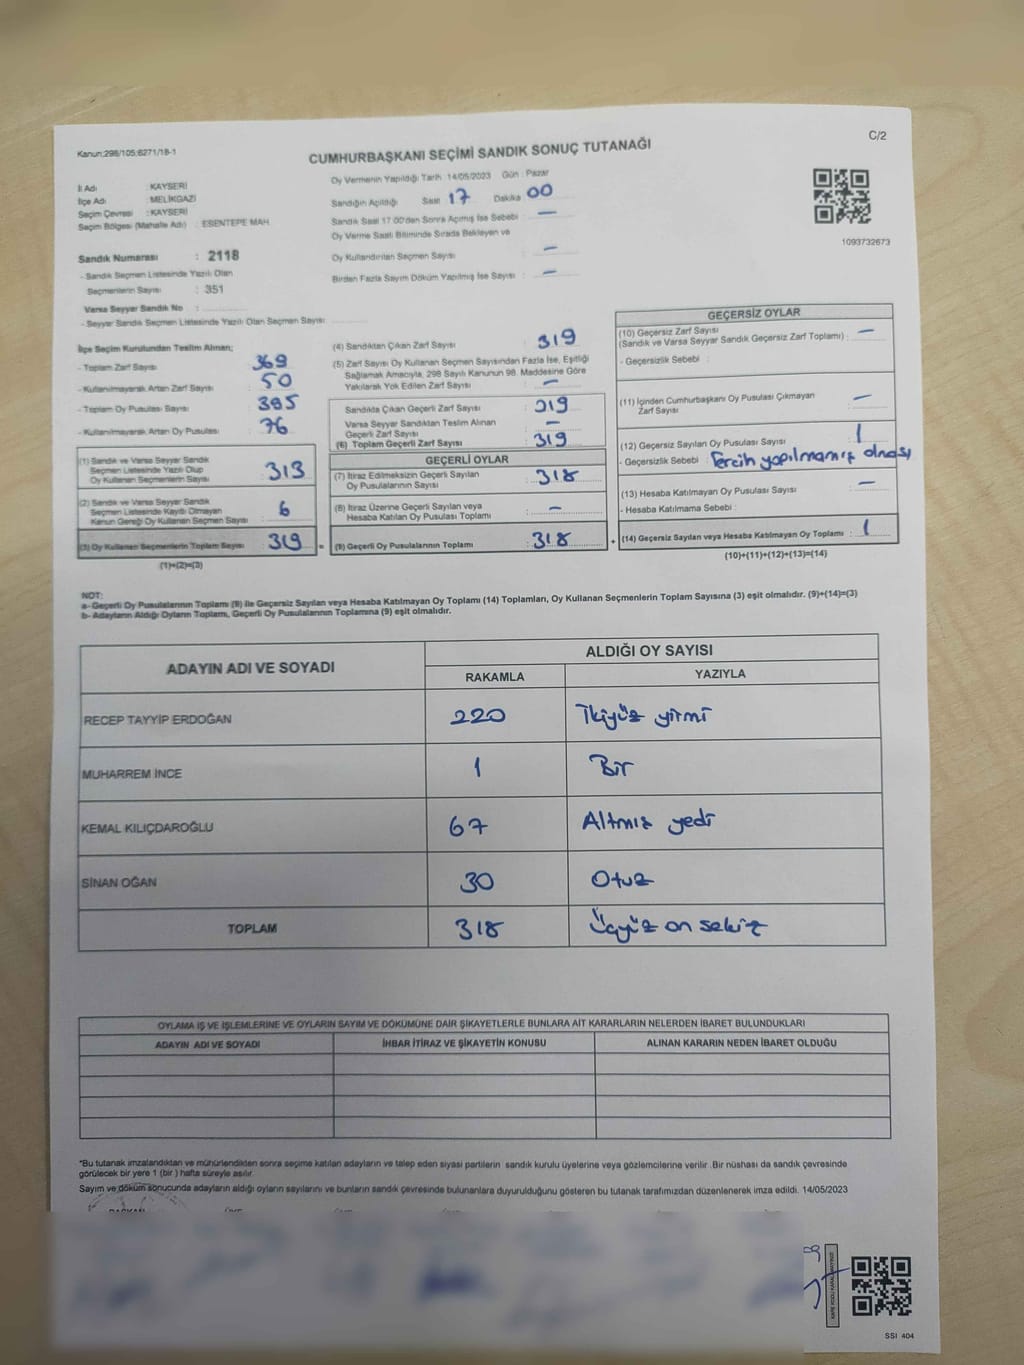 Kanun;298/105;6271/18-1
C/2
CUMHURBAŞKANI SEÇİMİ SANDIK SONUÇ TUTANAĞI
İl Adı : KAYSERİ
İlçe Adı : MELİKGAZİ
Seçim Çevresi : KAYSERİ
Seçim Bölgesi (Mahalle Adı) : ESENTEPE MAH.
Sandık Numarası : 2118
- Sandık Seçmen Listesinde Yazılı Olan
Seçmenlerin Sayısı : 351
Varsa Seyyar Sandık No :
- Seyyar Sandık Seçmen Listesinde Yazılı Olan Seçmen Sayısı:
Oy Vermenin Yapıldığı Tarih :14/05/2023 Gün : Pazar
Sandığın Açıldığı Saat 17 Dakika 00
Sandık Saat 17.00'den Sonra Açılmış İse Sebebi : —
Oy Verme Saati Bitiminde Sırada Bekleyen ve
Oy Kullandırılan Seçmen Sayısı : —
Birden Fazla Sayım Döküm Yapılmış İse Sayısı : —
1093732673
İlçe Seçim Kurulundan Teslim Alınan;
- Toplam Zarf Sayısı : 369
- Kullanılmayarak Artan Zarf Sayısı : 50
- Toplam Oy Pusulası Sayısı : 395
- Kullanılmayarak Artan Oy Pusulası : 76
(1) Sandık ve Varsa Seyyar Sandık
Seçmen Listesinde Yazılı Olup
Oy Kullanan Seçmenlerin Sayısı : 313
(2) Sandık ve Varsa Seyyar Sandık
Seçmen Listesinde Kaydı Olmayan
Kanun Gereği Oy Kullanan Seçmen Sayısı : 6
(3) Oy Kullanan Seçmenlerin Toplam Sayısı : 319 =
(1)+(2)=(3)
(4) Sandıktan Çıkan Zarf Sayısı : 319
(5) Zarf Sayısı Oy Kullanan Seçmen Sayısından Fazla İse, Eşitliği
Sağlamak Amacıyla, 298 Sayılı Kanunun 98. Maddesine Göre
Yakılarak Yok Edilen Zarf Sayısı : —
Sandıkta Çıkan Geçerli Zarf Sayısı : 319
Varsa Seyyar Sandıktan Teslim Alınan
Geçerli Zarf Sayısı : —
(6) Toplam Geçerli Zarf Sayısı : 319
GEÇERLİ OYLAR
(7) İtiraz Edilmeksizin Geçerli Sayılan
Oy Pusulalarının Sayısı : 318
(8) İtiraz Üzerine Geçerli Sayılan veya
Hesaba Katılan Oy Pusulası Toplamı : —
(9) Geçerli Oy Pusulalarının Toplamı : 318 +
GEÇERSİZ OYLAR
(10) Geçersiz Zarf Sayısı
(Sandık ve Varsa Seyyar Sandık Geçersiz Zarf Toplamı) : —
- Geçersizlik Sebebi :
(11) İçinden Cumhurbaşkanı Oy Pusulası Çıkmayan
Zarf Sayısı : —
(12) Geçersiz Sayılan Oy Pusulası Sayısı : 1
- Geçersizlik Sebebi : Tercih yapılmamış olması
(13) Hesaba Katılmayan Oy Pusulası Sayısı : —
- Hesaba Katılmama Sebebi :
(14) Geçersiz Sayılan veya Hesaba Katılmayan Oy Toplamı : 1
(10)+(11)+(12)+(13)=(14)
NOT:
a- Geçerli Oy Pusulalarının Toplamı (9) ile Geçersiz Sayılan veya Hesaba Katılmayan Oy Toplamı (14) Toplamları, Oy Kullanan Seçmenlerin Toplam Sayısına (3) eşit olmalıdır. (9)+(14)=(3)
b- Adayların Aldığı Oyların Toplamı, Geçerli Oy Pusulalarının Toplamına (9) eşit olmalıdır.
ADAYIN ADI VE SOYADI
ALDIĞI OY SAYISI
RAKAMLA YAZIYLA
RECEP TAYYİP ERDOĞAN 220 İkiyüz yirmi
MUHARREM İNCE 1 Bir
KEMAL KILIÇDAROĞLU 67 Altmış yedi
SİNAN OĞAN 30 Otuz
TOPLAM 318 Üçyüz on sekiz
OYLAMA İŞ VE İŞLEMLERİNE VE OYLARIN SAYIM VE DÖKÜMÜNE DAİR ŞİKAYETLERLE BUNLARA AİT KARARLARIN NELERDEN İBARET BULUNDUKLARI
ADAYIN ADI VE SOYADI İHBAR İTİRAZ VE ŞİKAYETİN KONUSU ALINAN KARARIN NEDEN İBARET OLDUĞU
*Bu tutanak imzalandıktan ve mühürlendikten sonra seçime katılan adayların ve talep eden siyasi partilerin sandık kurulu üyelerine veya gözlemcilerine verilir .Bir nüshası da sandık çevresinde
görülecek bir yere 1 (bir ) hafta süreyle asılır.
Sayım ve döküm sonucunda adayların aldığı oyların sayılarını ve bunların sandık çevresinde bulunanlara duyurulduğunu gösteren bu tutanak tarafımızdan düzenlenerek imza edildi. 14/05/2023
BAŞKAN
SSI 404